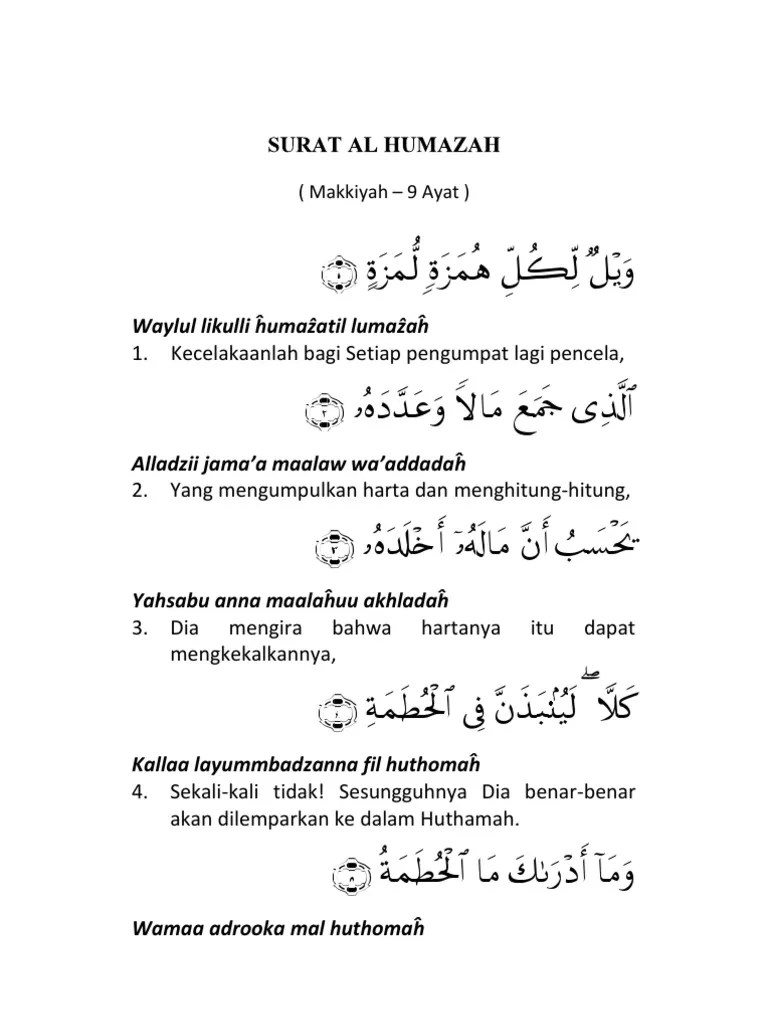 SURAT AL HUMAZAH
( Makkiyah – 9 Ayat )
وَيْلٌ لِّكُلِّ هُمَزَةٍ لُّمَزَةٍ ﴿١﴾
Waylul likulli ĥumaẑatil lumaẑaĥ
1. Kecelakaanlah bagi Setiap pengumpat lagi pencela,
ٱلَّذِى جَمَعَ مَالًا وَعَدَّدَهُۥ ﴿٢﴾
Alladzii jama’a maalaw wa’addadaĥ
2. Yang mengumpulkan harta dan menghitung-hitung,
يَحْسَبُ أَنَّ مَالَهُۥٓ أَخْلَدَهُۥ ﴿٣﴾
Yahsabu anna maalaĥuu akhladaĥ
3. Dia mengira bahwa hartanya itu dapat
mengkekalkannya,
كَلَّا ۖ لَيُنۢبَذَنَّ فِى ٱلْحُطَمَةِ ﴿٤﴾
Kallaa layummbadzanna fil huthomaĥ
4. Sekali-kali tidak! Sesungguhnya Dia benar-benar
akan dilemparkan ke dalam Huthamah.
وَمَآ أَدْرَىٰكَ مَا ٱلْحُطَمَةُ ﴿٥﴾
Wamaa adrooka mal huthomaĥ